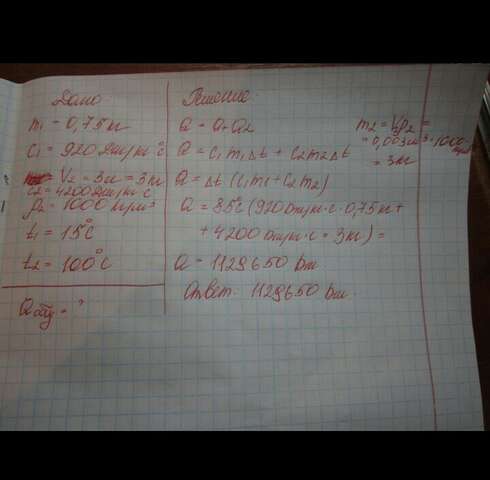 Дано
m₁ = 0,75 кг
c₁ = 920 Дж/кг °C
V₂ = 3л = 3 кг
c₂ = 4200 Дж/кг·°C
ρ₂ = 1000 кг/м³
t₁ = 15°C
t₂ = 100°C
Q общ = ?
Решение:
Q = Q₁+Q₂
Q = c₁m₁Δt + c₂m₂Δt
Q = Δt (c₁m₁ + c₂m₂)
Q = 85°C (920 Дж/кг·°C · 0,75кг +
+ 4200 Дж/кг·°C · 3кг) =
Q = 1129650 Дж.
Ответ: 1129650 Дж.
m₂ = V₂ρ₂ =
= 0,003м³·1000
= 3кг